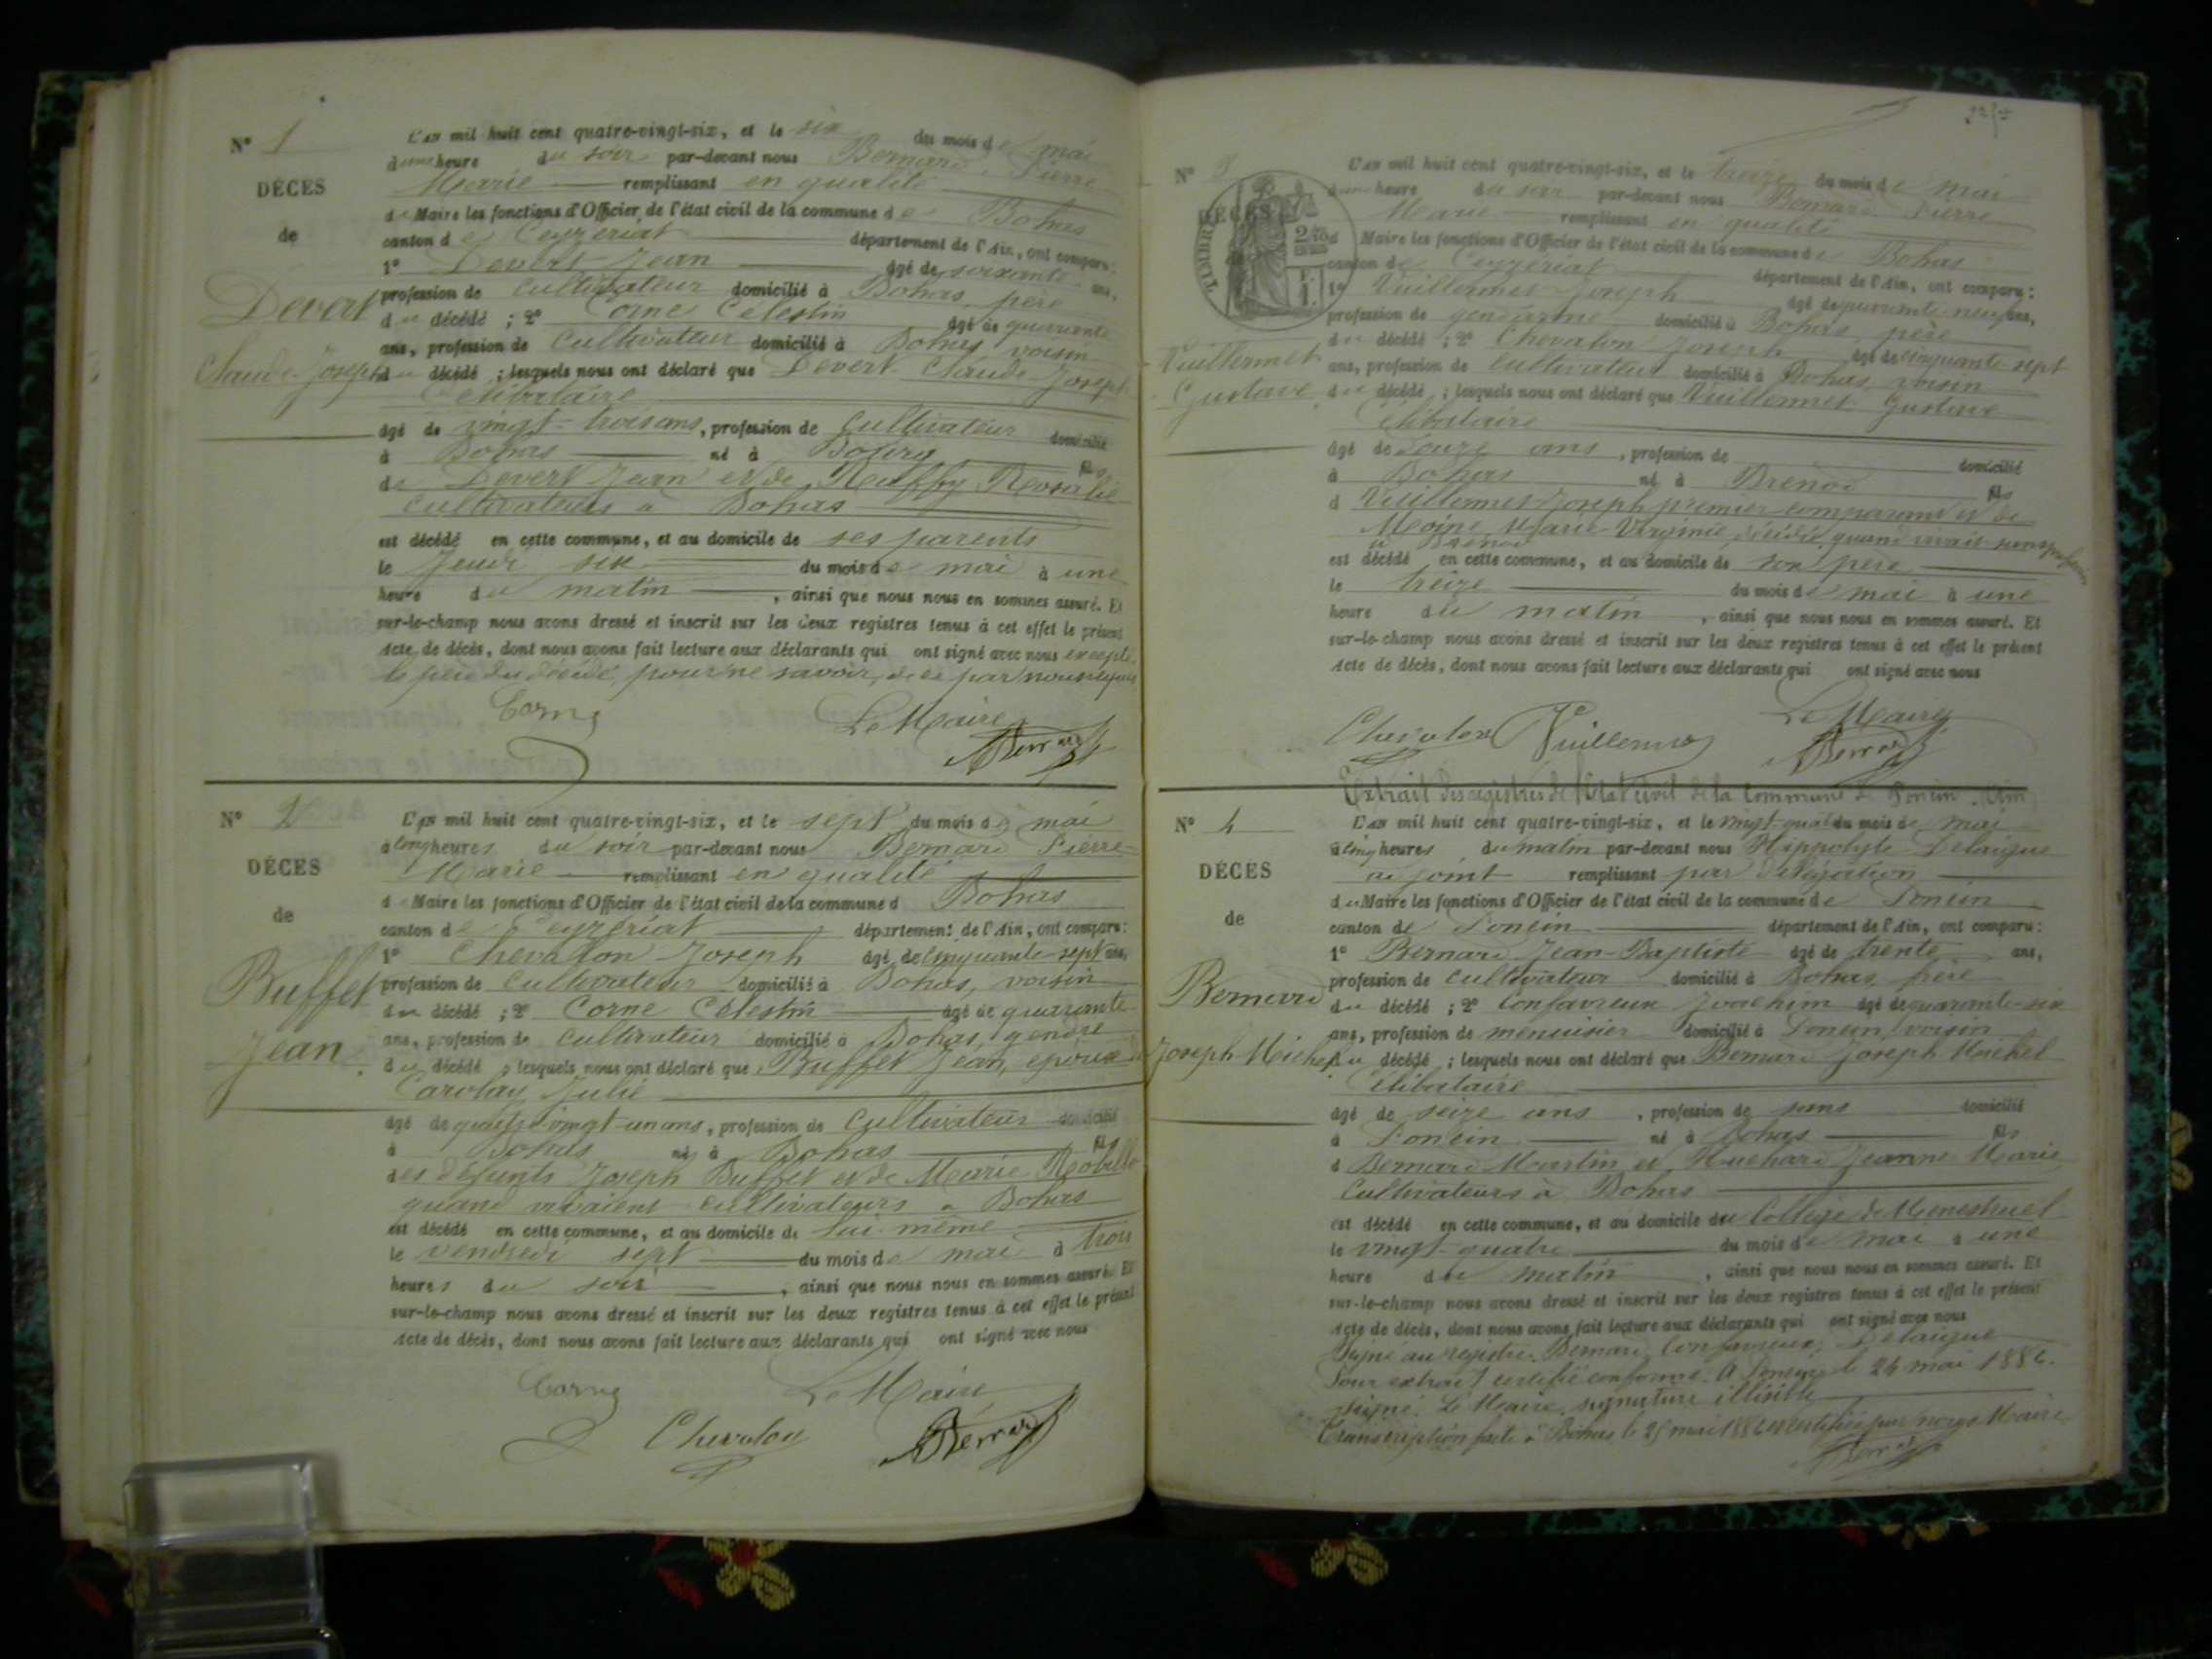 N° 1
DÉCÈS
de
Devert
Claude-Joseph
L'AN mil huit cent quatre-vingt-six, et le six du mois de mai
à une heure du soir par-devant nous Bernard Pierre
Marie remplissant en qualité
de Maire les fonctions d'Officier de l'état civil de la commune de Bohas
canton de Ceyzériat département de l'Ain, ont comparu:
1° Devert Jean âgé de soixante ans,
profession de cultivateur domicilié à Bohas, père
du décédé ; 2° Corne Célestin âgé de quarante
ans, profession de Cultivateur domicilié à Bohas voisin
du décédé ; lesquels nous ont déclaré que Devert Claude-Joseph
Célibataire
âgé de vingt-trois ans, profession de Cultivateur domicilié
à Bohas né à Bourg fils
de Devert Jean et de
cultivateurs à Bohas
est décédé en cette commune, et au domicile de ses parents
le Jeudi six du mois de mai à une
heure du matin, ainsi que nous nous en sommes assuré. Et
sur-le-champ nous avons dressé et inscrit sur les deux registres tenus à cet effet le présent
Acte de décès, dont nous avons fait lecture aux déclarants qui ont signé avec nous excepté
le père du décédé pour ne savoir, de ce par nous requis
Corne Le Maire
Bernard
N° 2
DÉCÈS
de
Buffet
Jean
L'AN mil huit cent quatre-vingt-six, et le sept du mois de mai
à cinq heures du soir par-devant nous Bernard Pierre
Marie remplissant en qualité
de Maire les fonctions d'Officier de l'état civil de la commune d Bohas
canton de Ceyzériat département de l'Ain, ont comparu:
1° Chevalon Joseph âgé de cinquante-sept ans,
profession de Cultivateur domicilié à Bohas, voisin
du décédé ; 2° Corne Célestin âgé de quarante
ans, profession de cultivateur domicilié à Bohas, gendre
du décédé ; lesquels nous ont déclaré que Buffet Jean, époux de
Carolay Julie
âgé de quatre-vingt-un ans, profession de Cultivateur domicilié
à Bohas né à Bohas fils
des défunts Joseph Buffet et de Marie
quand vivaient cultivateurs à Bohas
est décédé en cette commune, et au domicile de lui même
le vendredi sept du mois de mai à trois
heures du soir, ainsi que nous nous en sommes assuré. Et
sur-le-champ nous avons dressé et inscrit sur les deux registres tenus à cet effet le présent
Acte de décès, dont nous avons fait lecture aux déclarants qui ont signé avec nous
Corne Le Maire
Chevalon Bernard
N° 3
DÉCÈS
TIMBRE
Vuillermet
Gustave
L'AN mil huit cent quatre-vingt-six, et le treize du mois de mai
à une heure du soir par-devant nous Bernard Pierre
Marie remplissant en qualité
d Maire les fonctions d'Officier de l'état civil de la commune de Bohas
canton de Ceyzériat département de l'Ain, ont comparu:
1° Vuillermet Joseph âgé de quarante-neuf ans,
profession de gendarme domicilié à Bohas, père
du décédé ; 2° Chevalon Joseph âgé de cinquante-sept
ans, profession de cultivateur domicilié à Bohas voisin
du décédé ; lesquels nous ont déclaré que Vuillermet Gustave
Célibataire
âgé de douze ans, profession de domicilié
à Bohas né à Brénod fils
d Vuillermet Joseph premier comparant et de
Moine Marie-Virginie, décédée quand vivait sans profession
à Brénod
est décédé en cette commune, et au domicile de son père
le treize du mois de mai à une
heure du matin, ainsi que nous nous en sommes assuré. Et
sur-le-champ nous avons dressé et inscrit sur les deux registres tenus à cet effet le présent
Acte de décès, dont nous avons fait lecture aux déclarants qui ont signé avec nous
Le Maire
Chevalon Vuillermet Bernard
Extrait des registres de l'Etat civil de la Commune de Poncin (Ain)
N° 4
DÉCÈS
de
Bernard
Joseph-Michel
L'AN mil huit cent quatre-vingt-six, et le vingt-quatre du mois de mai
à cinq heures du matin par-devant nous Hippolyte Delaigue
adjoint remplissant par délégation
du Maire les fonctions d'Officier de l'état civil de la commune de Poncin
canton de Poncin département de l'Ain, ont comparu:
1° Bernard Jean-Baptiste âgé de trente ans,
profession de cultivateur domicilié à Bohas, frère
du décédé ; 2° Confavreux Joachim âgé de quarante-six
ans, profession de menuisier domicilié à Poncin, voisin
du décédé ; lesquels nous ont déclaré que Bernard Joseph Michel
célibataire
âgé de seize ans, profession de sans domicilié
à Poncin né à Bohas fils
d Bernard Martin et Huchard Jeanne Marie
Cultivateurs à Bohas
est décédé en cette commune, et au domicile du Collège de Menestruel
le vingt-quatre du mois de mai à une
heure du matin, ainsi que nous nous en sommes assuré. Et
sur-le-champ nous avons dressé et inscrit sur les deux registres tenus à cet effet le présent
Acte de décès, dont nous avons fait lecture aux déclarants qui ont signé avec nous
Signé au registre. Bernard, Confavreux, Delaigue
Pour extrait certifié conforme. A Poncin le 24 mai 1886.
signé: Le Maire, signature illisible
Transcription faite à Bohas le 25 mai 1886 et certifiée par nous Maire
Bernard